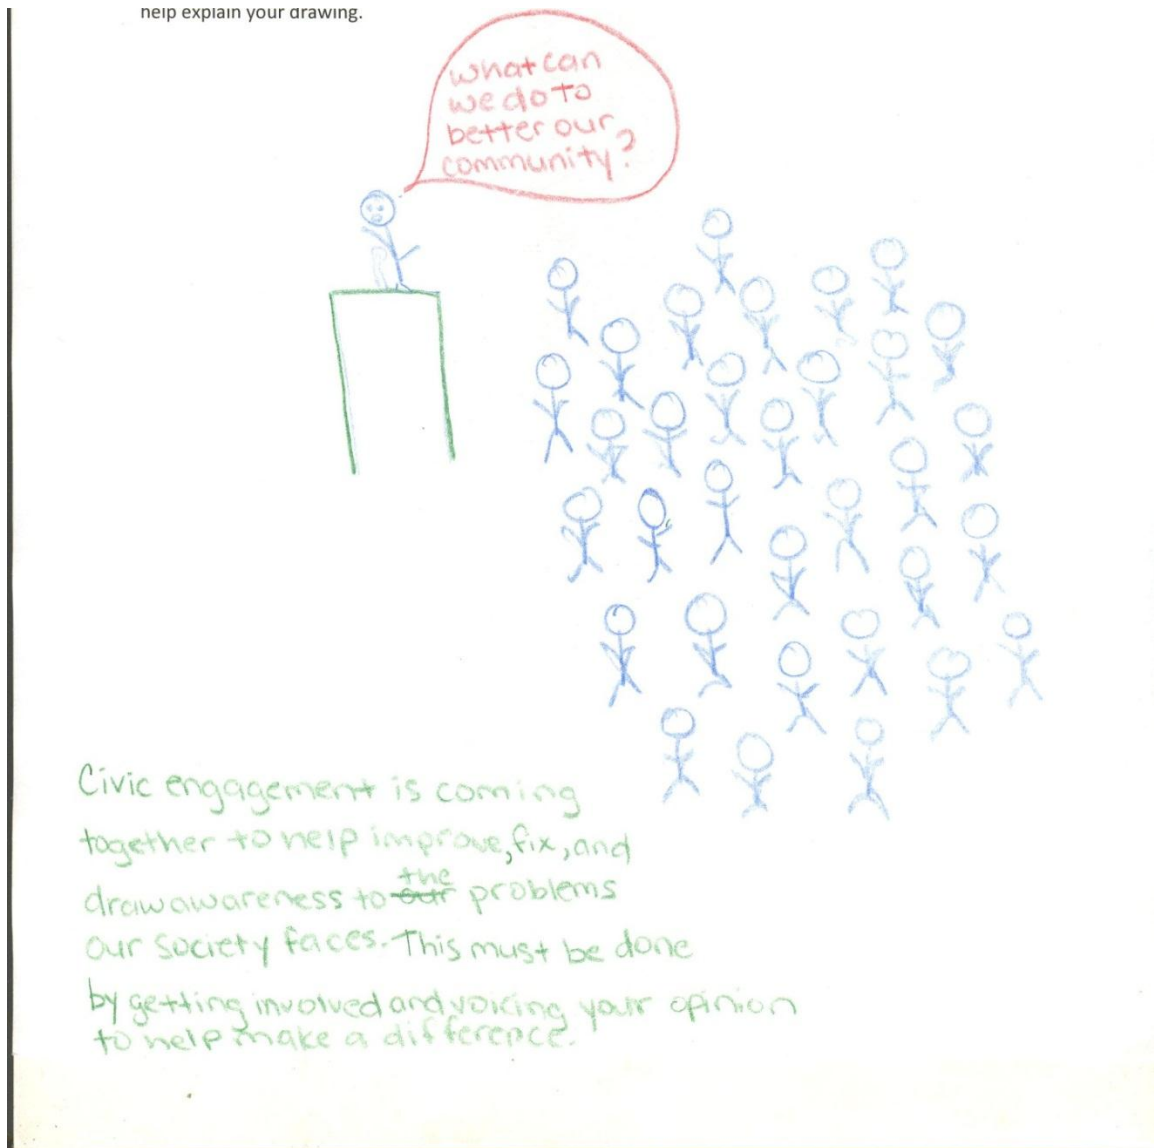 help explain your drawing.
what can
we do to
better our
community?
Civic engagement is coming
together to help improve, fix, and
draw awareness to our the problems
our society faces. This must be done
by getting involved and voicing your opinion
to help make a difference.